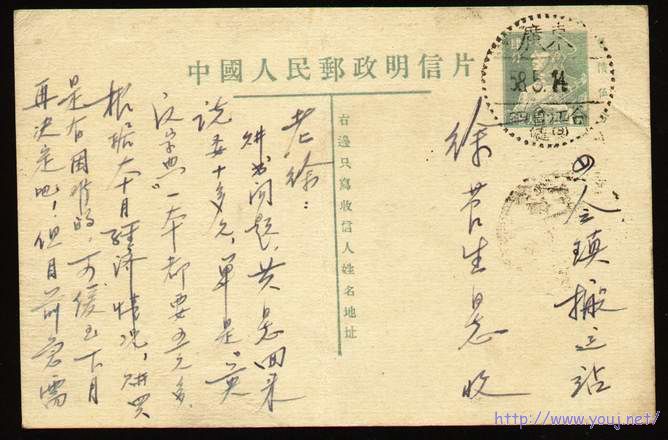 中國人民郵政明信片
廣東
58.5.14
四会镇搬运站
徐
收
右邊只寫收信人姓名地址
老徐：
购书问题，黄老回来
说要十多元，单是"英
汉字典"一本都要五元多，
根据大个月经济情况，购买
是有困难的，可缓至下月
再决定吧！但目前急需
http://www.youj.net/